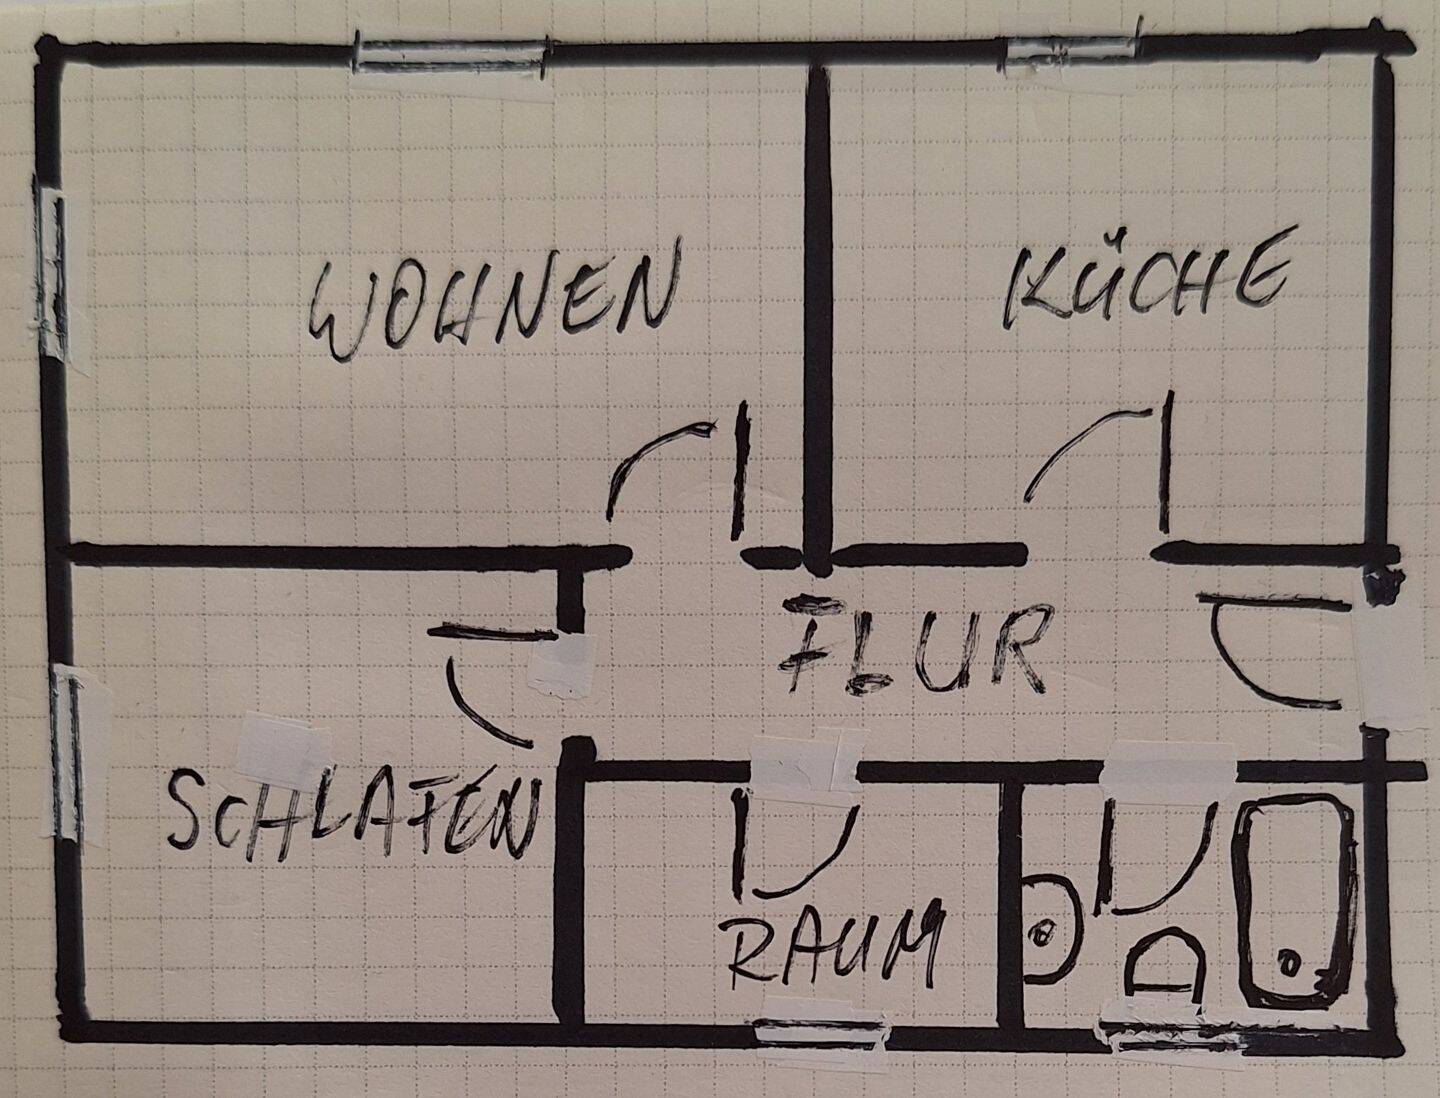 WOHNEN
KÜCHE
FLUR
SCHLAFEN
RAUM